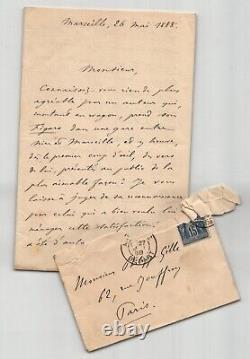 Marseille, 26 mai 1888.
Monsieur,
Connaissez-vous rien de plus
agréable pour un auteur qui,
montant en wagon, prend son
Figaro dans une gare entre
Nice et Marseille, et y trouve,
du premier coup d'œil, des vers
de lui, présentés au public de la
plus aimable façon? Je vous
laisse à juger de sa reconnaissance
pour celui qui a bien voulu lui mé-
nager cette satisfaction
Monsieur Philippe Gille
62, rue Jouffroy
Paris.
15
ebay